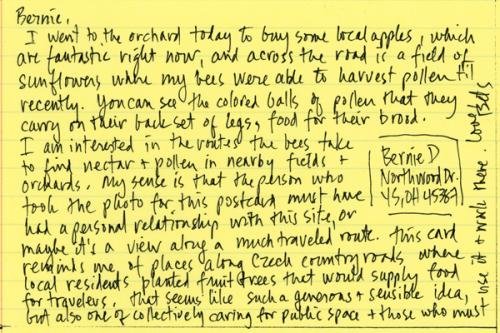 Bernie,
I went to the orchard today to buy some local apples, which
are fantastic right now, and across the road is a field of
sunflowers where my bees were able to harvest pollen 'til
recently. You can see the colored balls of pollen that they
carry on their back set of legs, food for their brood.
I am interested in the routes the bees take
to find nectar + pollen in nearby fields +
orchards. My sense is that the person who
took the photo for this postcard must have
had a personal relationship with this site, or
maybe it's a view along a much traveled route. This card
reminds me of places along Czech country roads where
local residents planted fruit trees that would supply food
for travelers. That seems like such a generous + sensible idea,
but also one of collectively caring for public space + those who must
use it + walk there. Love, Bets
Bernie D
Northwood Dr.
YS, OH 45387